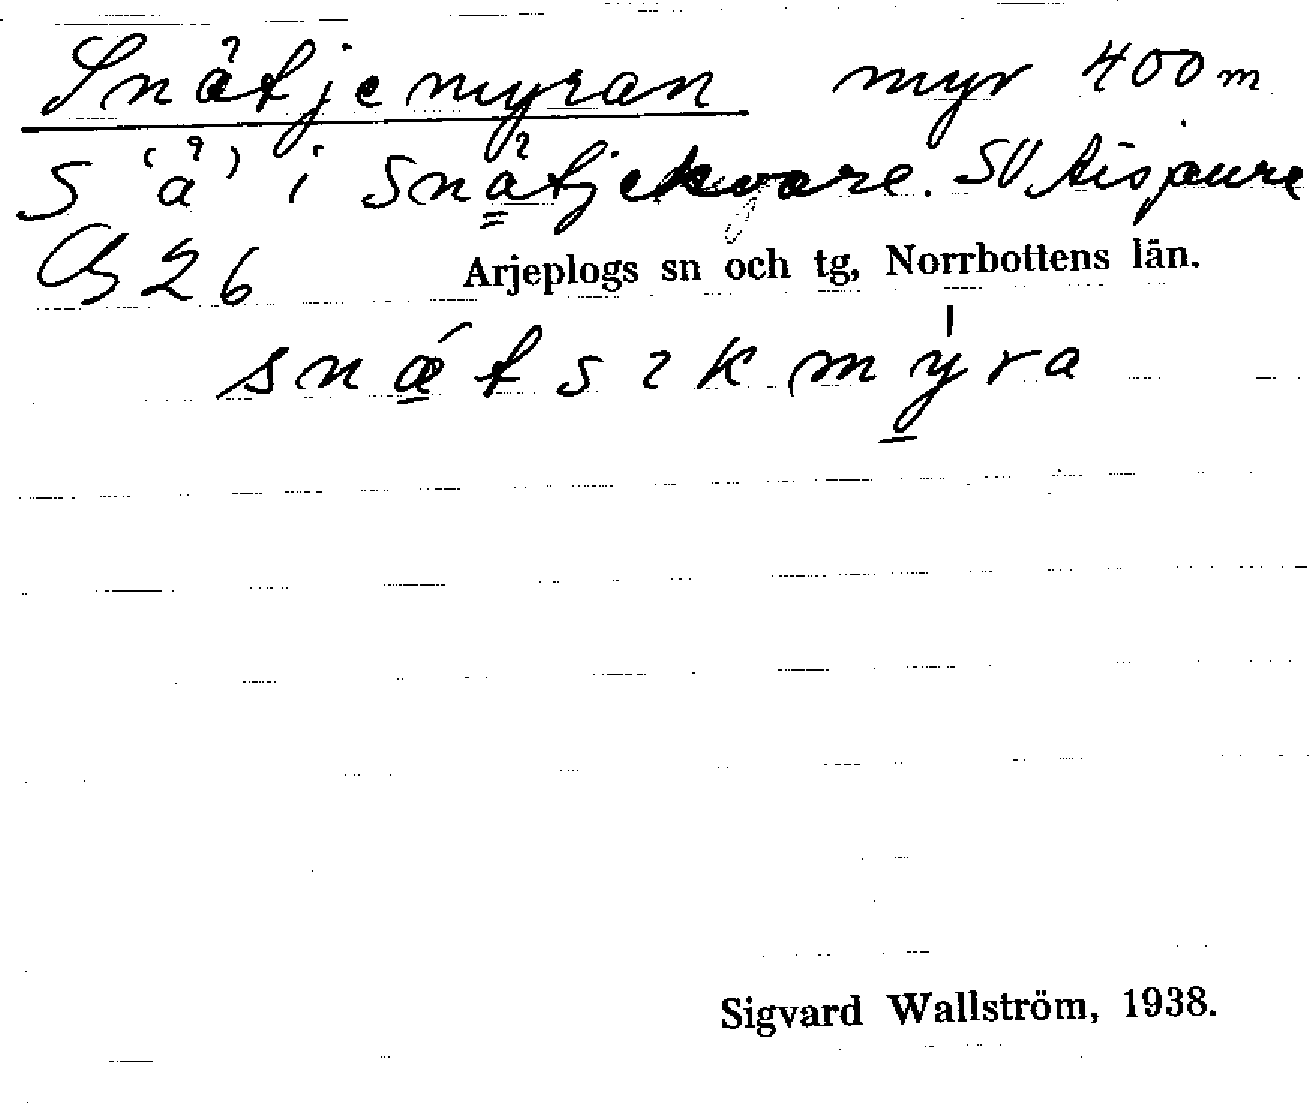 Snåtjemyran myr 400 m
S (å) i Snåtjekvare. SV Aisjaure
B 26 Arjeplogs sn och tg, Norrbottens län.
snǽtsɩkmyra
Sigvard Wallström, 1938.